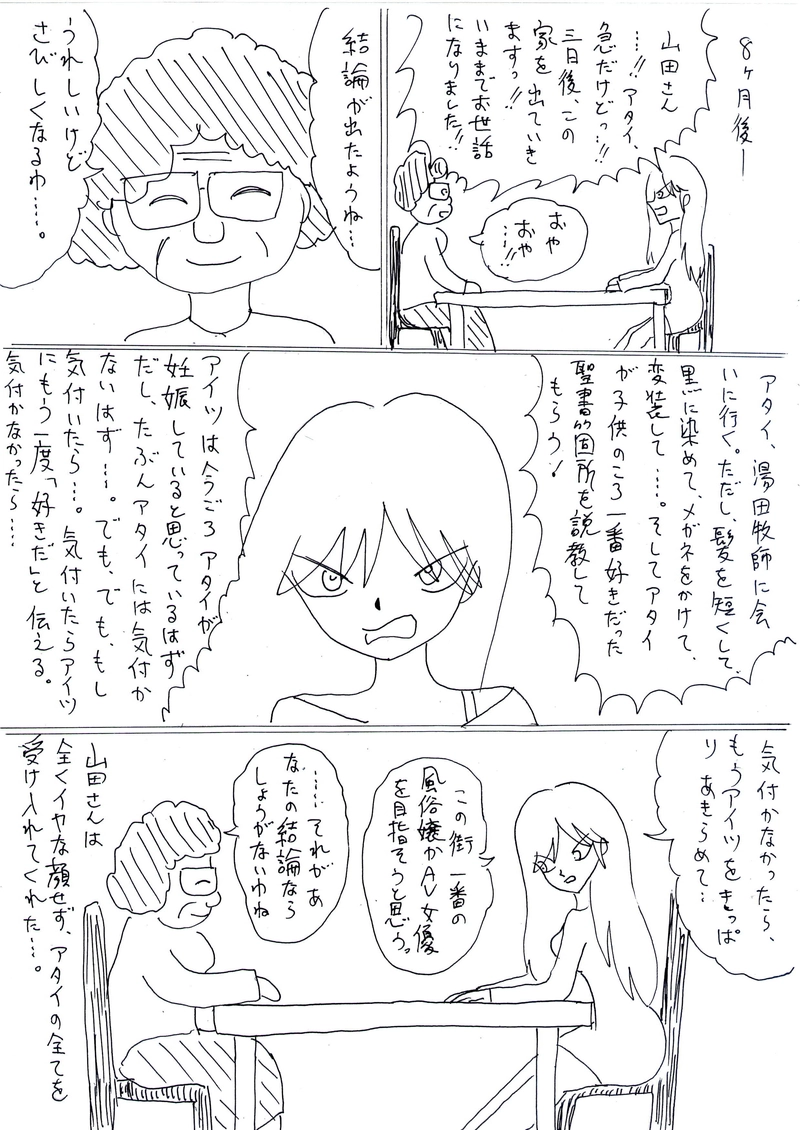 8ヶ月後ー
山田さん
…!!アタイ、
急だけどっ…!!
三日後、この
家を出ていき
ますっ!!
いままでお世話
になりました!!
おや
おや
…!!
結論が出たようね…
うれしいけど
さびしくなるわ……。
アタイ、湯田牧師に会
いに行く。ただし、髪を短くして、
黒に染めて、メガネをかけて、
変装して……。そしてアタイ
が子供のころ一番好きだった
聖書箇所を説教して
もらう!
アイツは今ごろアタイが
妊娠していると思っているはず
だし、たぶんアタイには気付か
ないはず…。でも、でも、もし
気付いたら…。気付いたらアイツ
にもう一度「好きだ」と伝える。
気付かなかったら……
気付かなかったら、
もうアイツをきっぱ
りあきらめて…
この街一番の
風俗嬢かAV女優
を目指そうと思う。
……それがあ
なたの結論なら
しょうがないわね
山田さんは
全くイヤな顔せず、アタイの全てを
受け入れてくれた…。